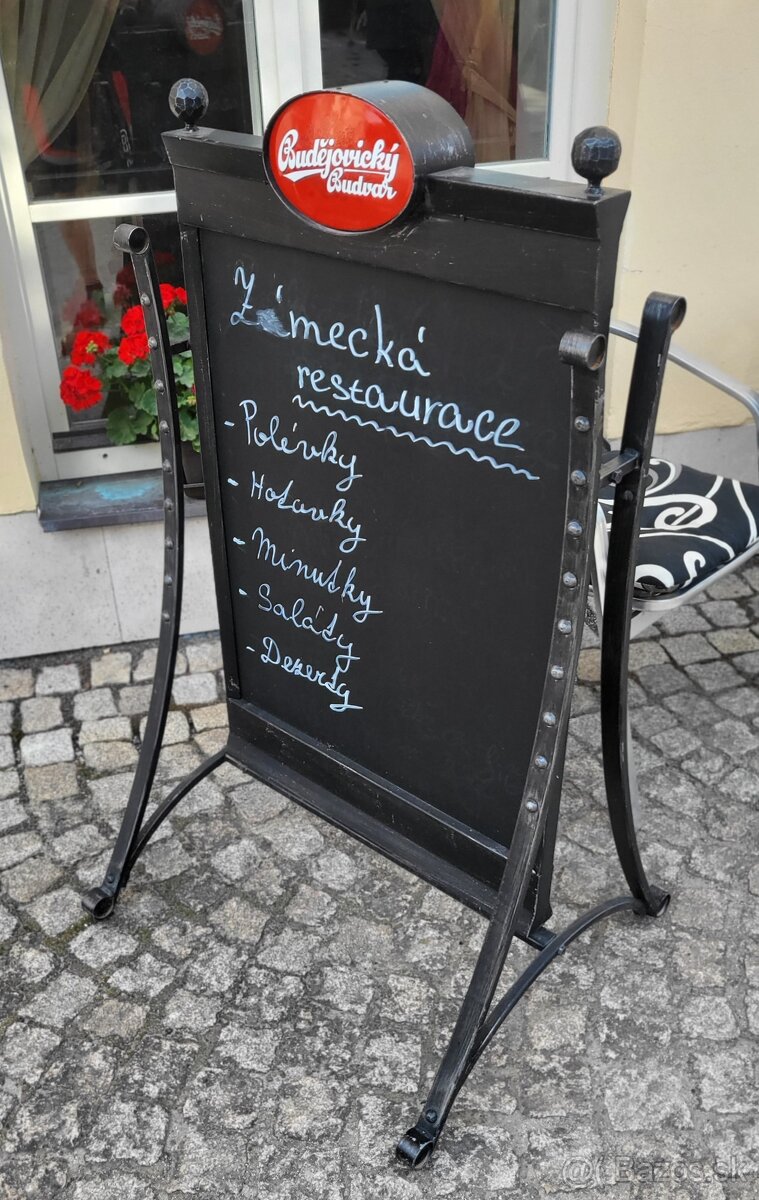 Budějovický
Budvar
Zámecká
restaurace
- Polévky
- Hotovky
- Minutky
- Saláty
- Dezerty
@ Bazos.sk